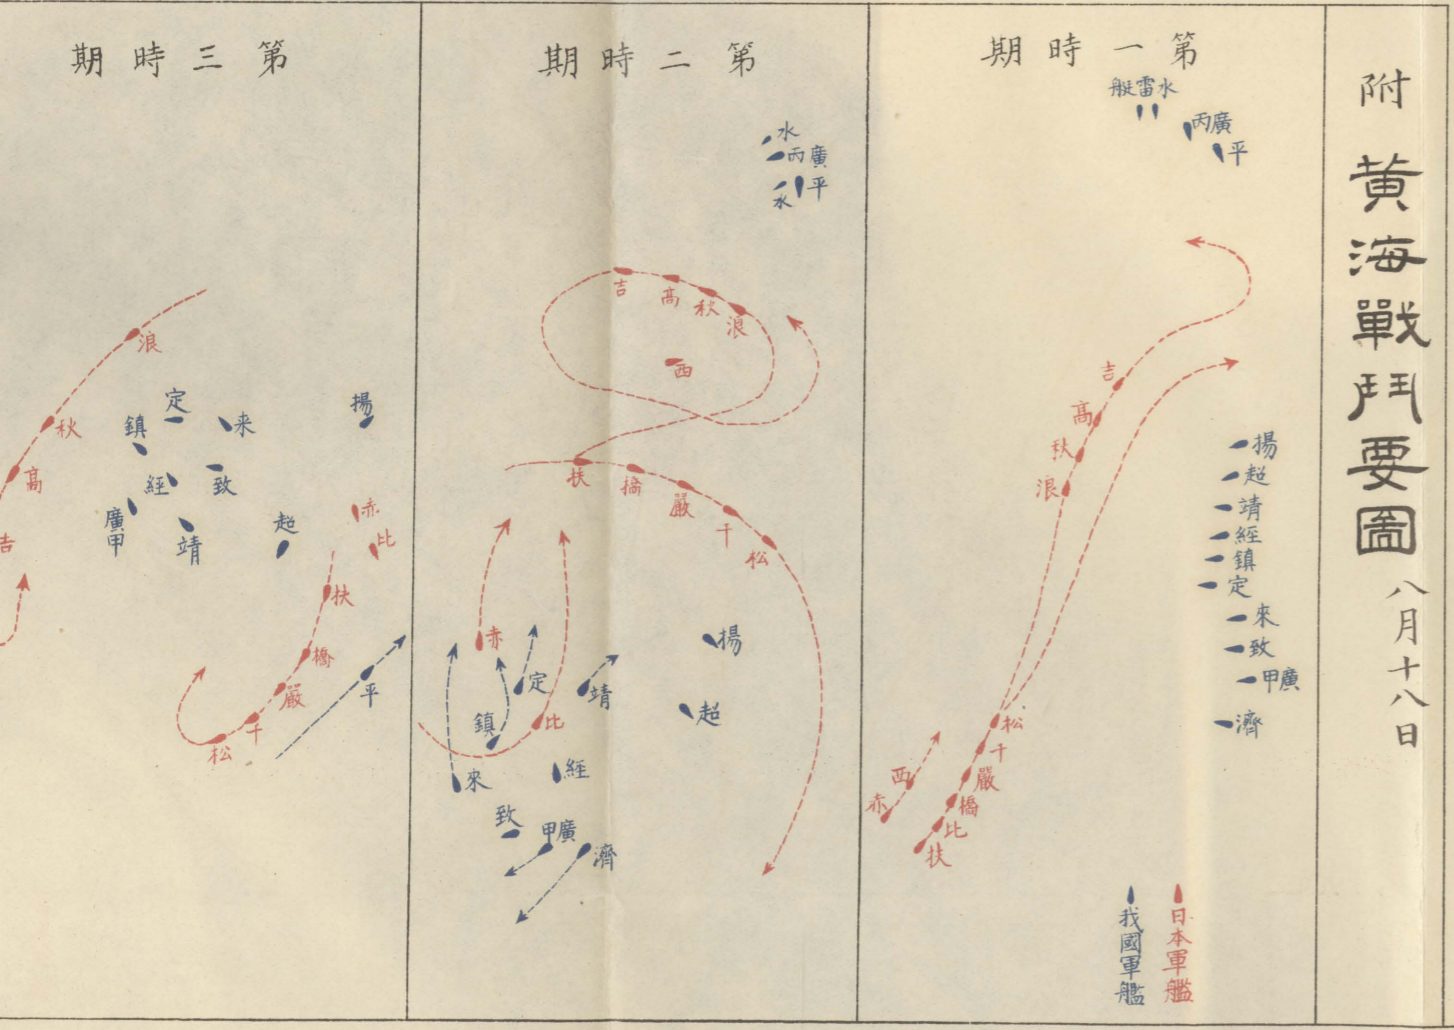 附
黃海戰鬥要圖
八月十八日
第一時期
水雷艇
廣丙
平
吉
高
秋
浪
揚
超
靖
經
鎮
定
來
致
廣甲
濟
松
千
嚴
橋
比
扶
西
赤
日本軍艦
我國軍艦
第二時期
水
廣丙
平
水
吉
高
秋
浪
西
扶
橋
嚴
千
松
赤
揚
定
靖
超
鎮
比
來
經
致
廣甲
濟
第三時期
浪
定
揚
鎮
来
秋
高
經
致
赤
廣甲
超
比
靖
吉
扶
橋
平
嚴
千
松